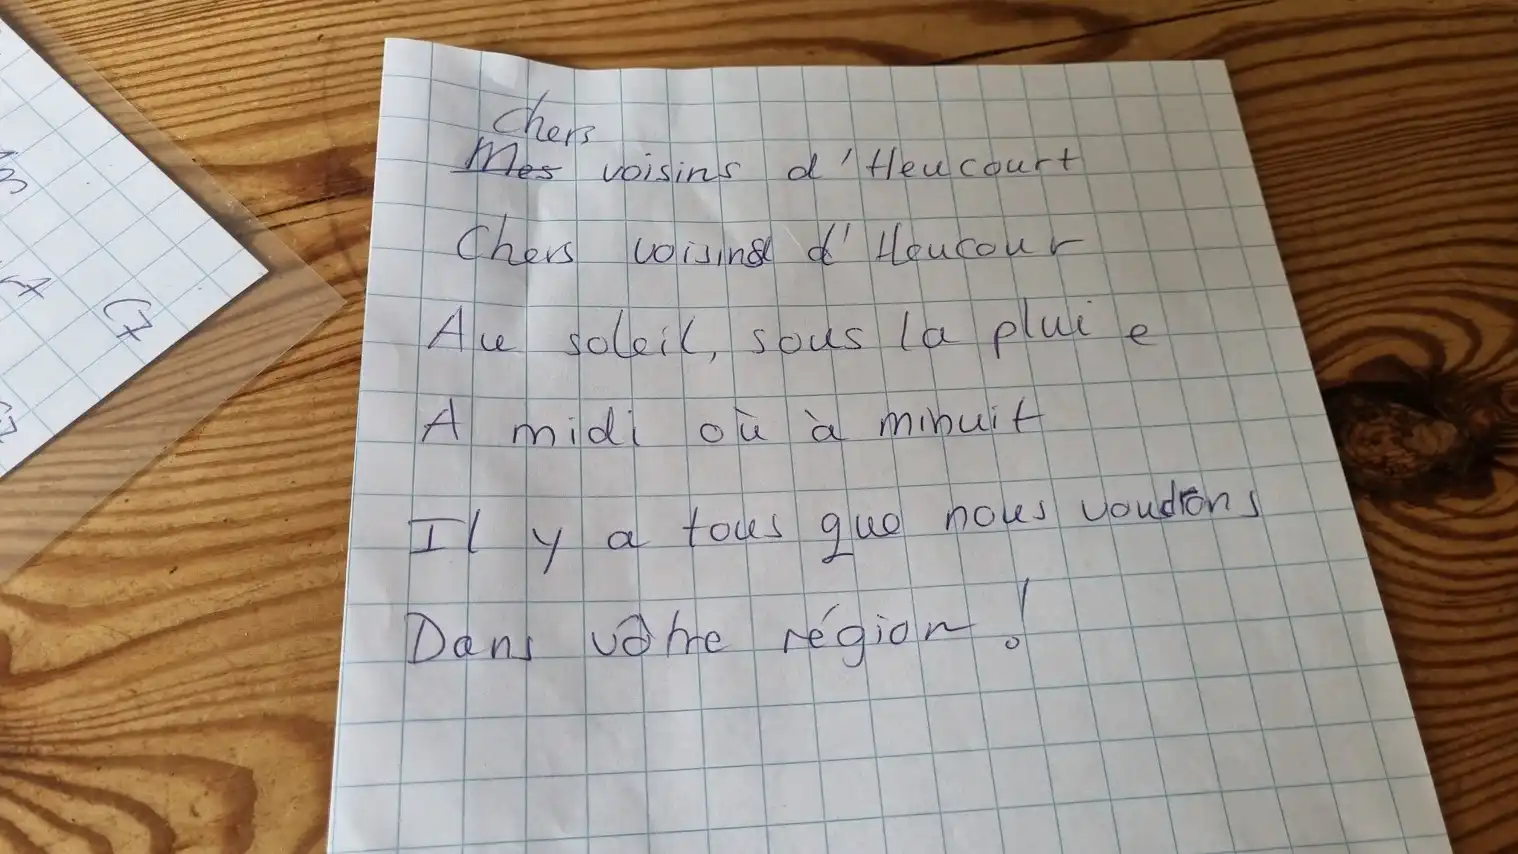 Chers
Mes voisins d'Heucourt
Chers voisins d'Heucour
Au soleil, sous la pluie
A midi où à minuit
Il y a tous que nous voudrons
Dans vôtre région !
C7